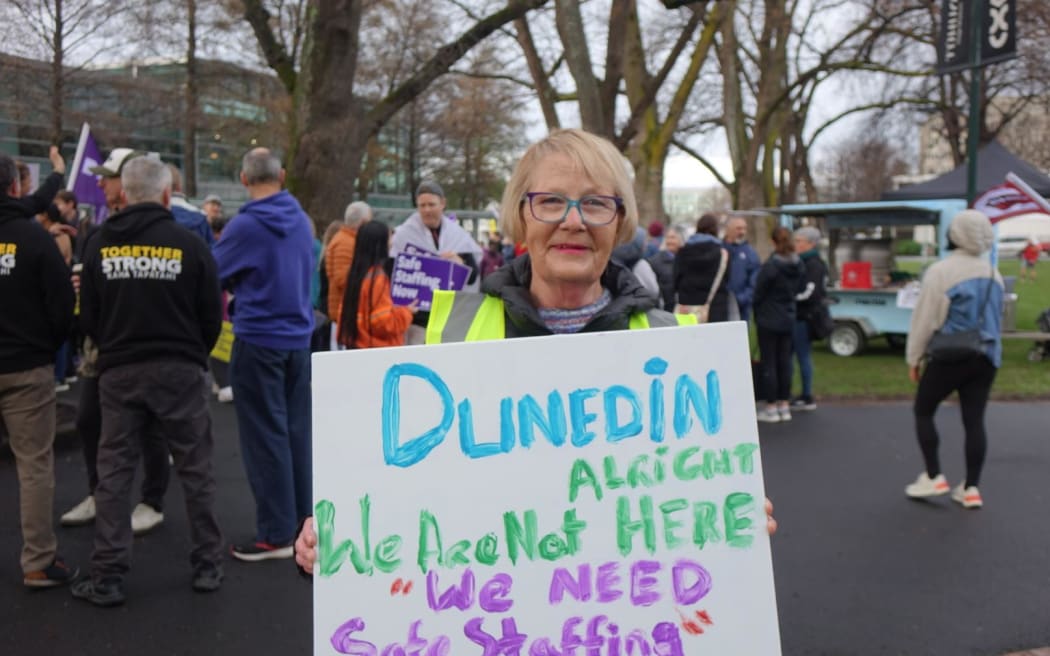 TOGETHER
STRONG
KAHA TĀPĀTAHI
Safe
Staffing
Now
DUNEDiN
ALRiGHT
We Are Not HERE
"We NEED
Safe Staffing"